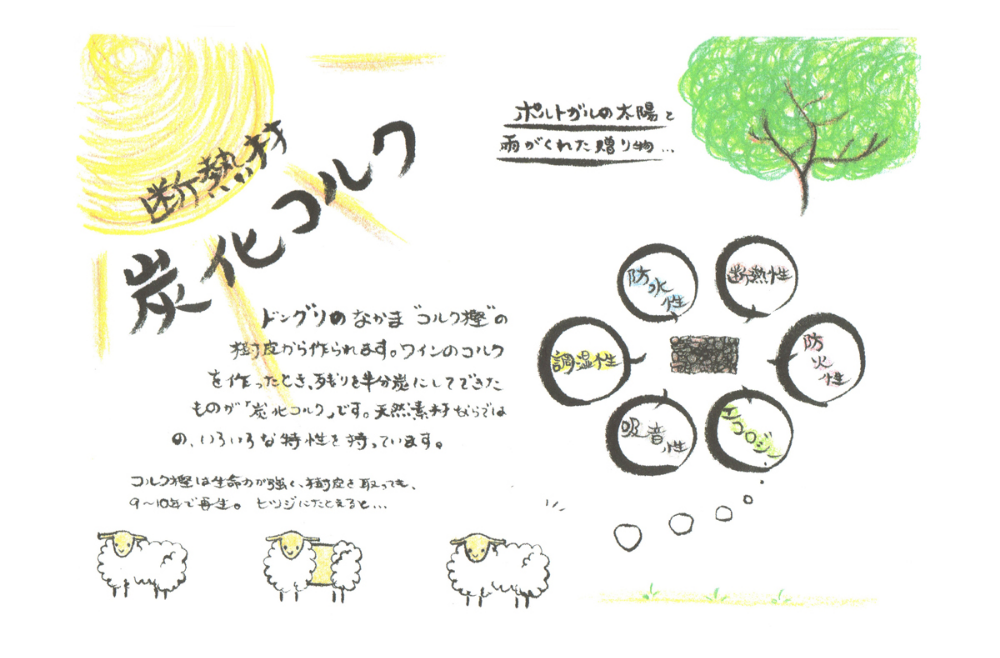 断熱材
炭化コルク
ポルトガルの太陽と
雨がくれた贈り物…
ドングリのなかま"コルク樫"の
樹皮から作られます。ワインのコルク
を作ったとき、残りを半分炭にしてできた
ものが「炭化コルク」です。天然素材ならでは
の、いろいろな特性を持っています。
コルク樫は生命力が強く、樹皮を取っても、
9〜10年で再生。ヒツジにたとえると…
防水性
断熱性
調湿性
防火性
吸音性
エコロジー